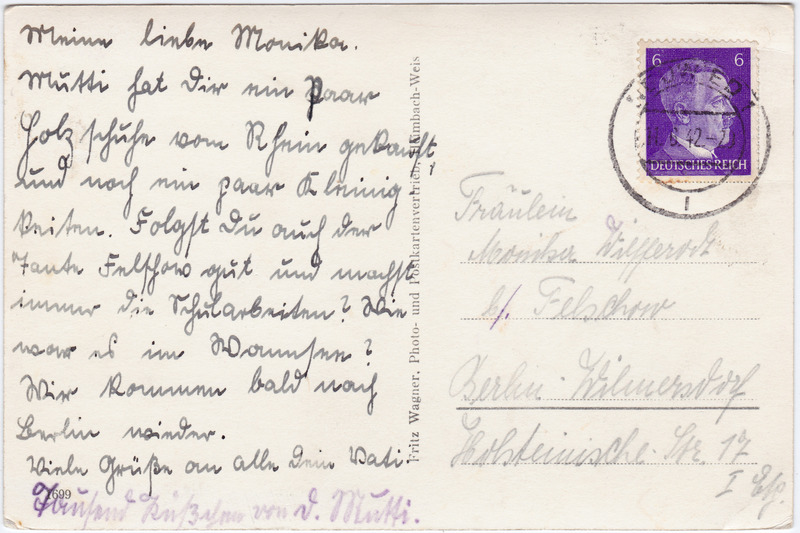 Meine liebe Monika.
Mutti hat Dir ein paar
Holzschuhe vom Rhein gekauft
und noch ein paar Kleinig
keiten. Folgst Du auch der
Tante Felschow gut und machst
immer die Schularbeiten? Wie
war es im Wannsee?
Wir kommen bald nach
Berlin wieder.
Viele Grüße an alle Dein Vati.
Tausend Küßchen von d. Mutti.
1699
Fritz Wagner, Photo- und Postkartenvertrieb, Heimbach-Weis
6 6
42
DEUTSCHES REICH
Fräulein
Monika
b/. Felschow
Berlin-Wilmersdorf
Holsteinische-Str. 17
I Etg.